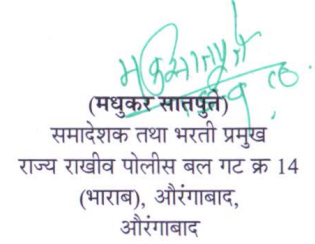 (मधुकर सातपुते)
समादेशक तथा भरती प्रमुख
राज्य राखीव पोलीस बल गट क्र 14
(भाराब), औरंगाबाद,
औरंगाबाद